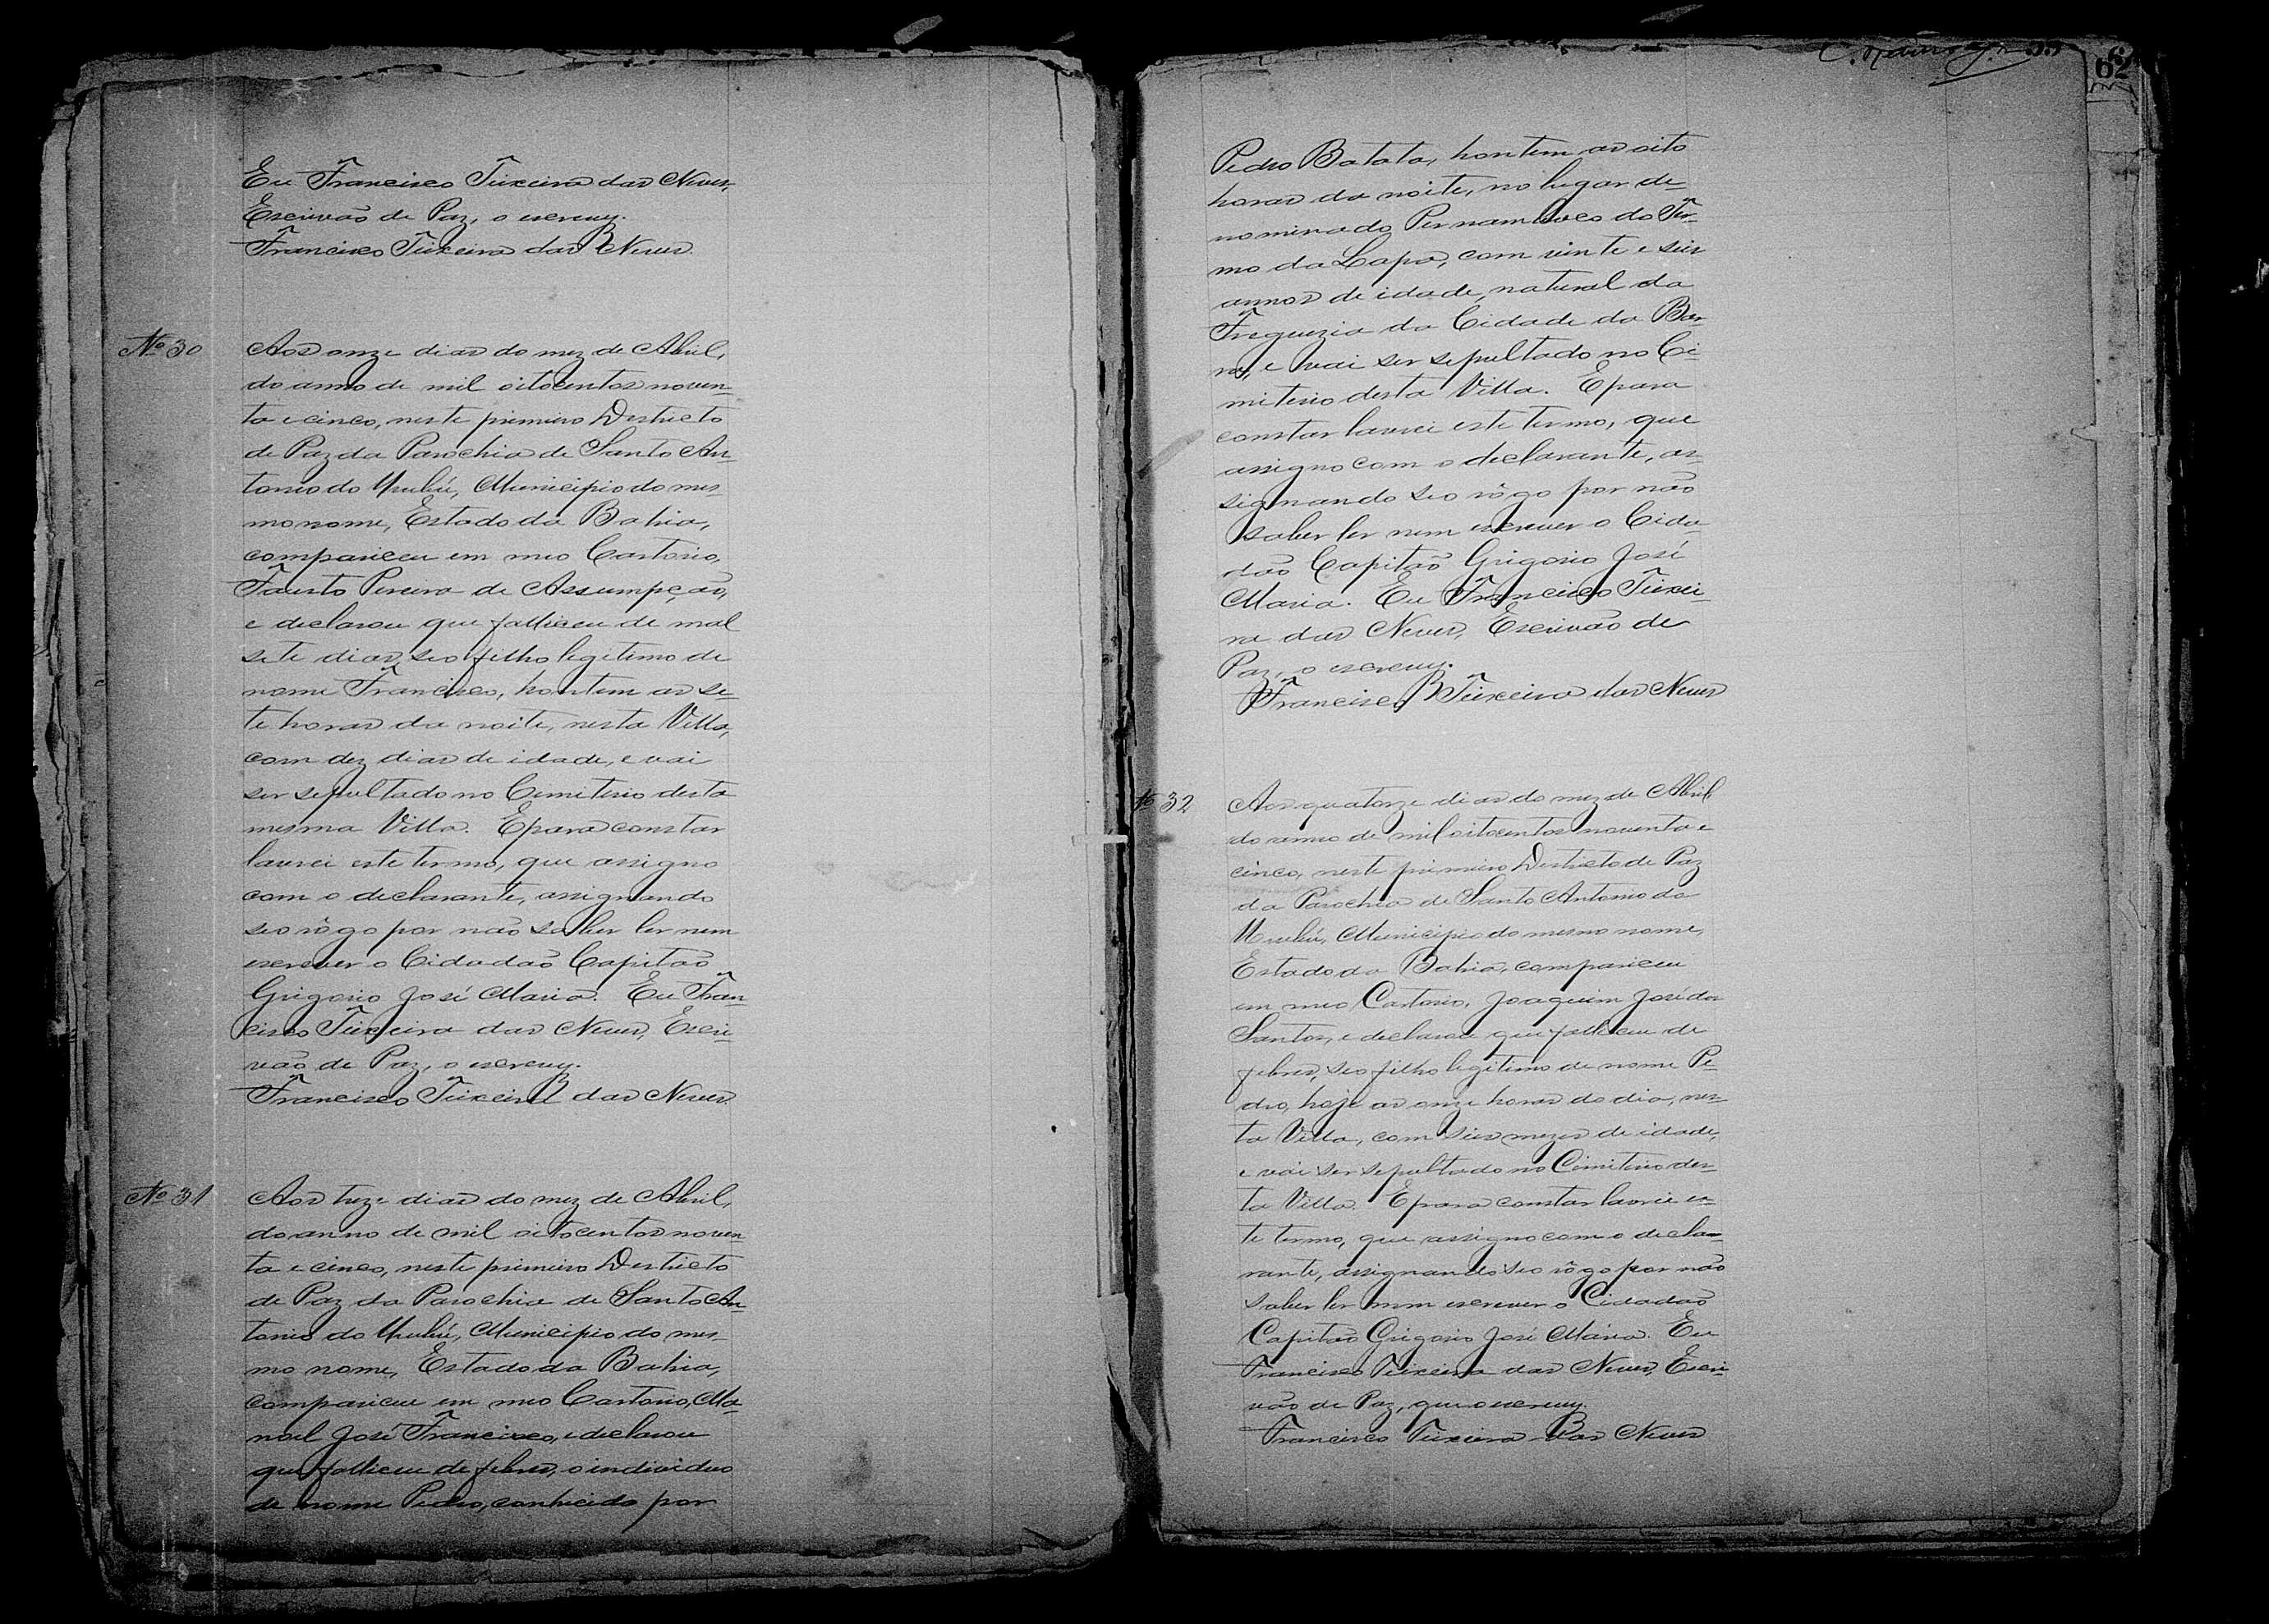 Eu Francisco Teixeira das Neves,
Escrivão de Paz, o escrevy.
Francisco Teixeira das Neves.
Nº 30
Aos onze dias do mez de Abril,
do anno de mil oitocentos noven-
ta e cinco, neste primeiro Destricto
de Paz da Parochia de Santo An-
tonio do Urubú, Municipio do mes-
mo nome, Estado da Bahia,
compareceu em meo Cartorio,
Fausto Pereira de Assumpção,
e declarou que falliceu de mal
sete dias, seo filho legitimo de
nome Francisco, hontem as se-
te horas da noite, nesta Villa,
com dez dias de idade, e vai
ser sepultado no Cemiterio desta
mesma Villa. E para constar
lavrei este termo, que assigno
com o declarante, assignando
seo rôgo por não saber ler nem
escrever o Cidadão Capitão
Grigorio José Maria. Eu Fran-
cisco Teixeira das Neves, Escri-
vão de Paz, o escrevy.
Francisco Teixeira das Neves.
Nº 31
Aos treze dias do mez de Abril,
do anno de mil oitocentos noven-
ta e cinco, neste primeiro Destricto
de Paz da Parochia de Santo An-
tonio do Urubú, Municipio do mes-
mo nome, Estado da Bahia,
compareceu em meo Cartorio, Ma-
noel José Francisco, e declarou
que falliceu de febres, o individuo
de nome Pedro, conhecido por
62
Pedro Batata, hontem as oito
horas da noite, no lugar de-
nominado Pernambuco do Ter-
mo da Lapa, com vinte e seis
annos de idade, natural da
Freguezia da Cidade da Bar-
ra, e vai ser sepultado no Ci-
miterio desta Villa. E para
constar lavrei este termo, que
assigno com o declarante, as-
signando seo rôgo por não
saber ler nem escrever o Cida-
dão Capitão Grigorio José
Maria. Eu Francisco Teixei-
ra das Neves, Escrivão de
Paz, o escrevy.
Francisco Teixeira das Neves
Nº 32
Aos quatorze dias do mez de Abril
do anno de mil oitocentos noventa e
cinco, neste primeiro Destricto de Paz
da Parochia de Santo Antonio do
Urubú, Municipio do mesmo nome,
Estado da Bahia, compareceu
em meo Cartorio, Joaquim José dos
Santos, e declarou que falliceu de
febres, seo filho legitimo de nome Pe-
dro, hoje as onze horas do dia, nes-
ta Villa, com seis mezes de idade,
e vai ser sepultado no Cimiterio des-
ta Villa. E para constar lavrei es-
te termo, que assigno com o decla-
rante, assignando seo rôgo por não
saber ler nem escrever o Cidadão
Capitão Grigorio José Maria. Eu
Francisco Teixeira das Neves, Escri-
vão de Paz, que o escrevy.
Francisco Teixeira das Neves